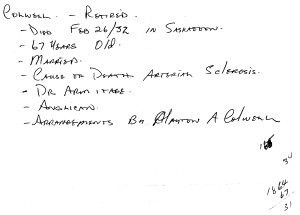 Colwell. - Retired.
- Died Feb 26/32 in Saskatoon.
- 67 Years Old.
- Married.
- Cause of Death Arterial Sclerosis.
- Dr Armitage.
- Anglican.
- Arrangements By A Colwell
1864
67
- 31